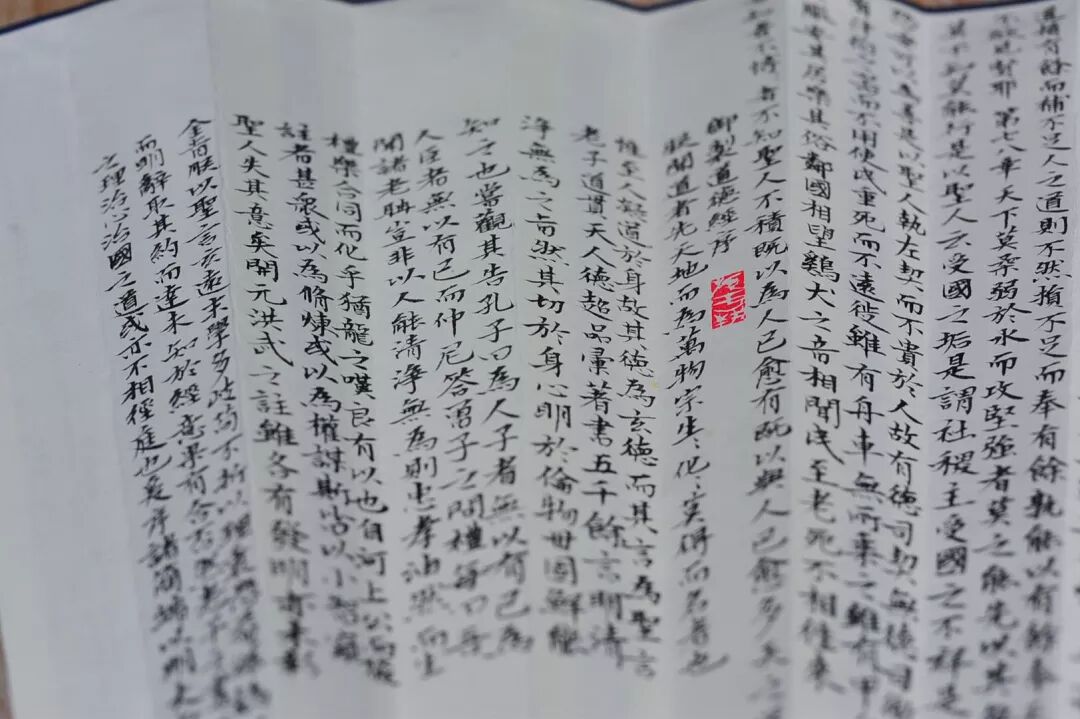 道損有餘而補不足人之道則不然損不足而奉有餘孰能以有餘奉
第七八章天下莫柔弱於水而攻堅強者莫之能先以其
莫不知莫能行是以聖人云受國之垢是謂社稷主受國之不祥是
可以為善是以聖人執左契而不責於人故有德司契無德司
有什伯之器而不用使民重死而不遠徙雖有舟車無所乘之雖有甲
服安其居樂其俗鄰國相望雞犬之音相聞民至老死不相往來
知者不博者不知聖人不積既以為人已愈有既以與人已愈多天之
御製道德經序
朕聞道者先天地而為萬物宗生化實所名者也
惟至人凝道於身故其德為玄德而其言為聖言
老子道貫天人德超品彙著書五千餘言明清
淨無為之旨而然其切於身心明於倫物世固鮮能
知之也嘗觀其告孔子曰為人子者無以有己為
人臣者無以有己而仲尼答曾子之問禮每曰吾
聞諸老聃豈非以人能清淨無為則忠孝油然而生
禮樂合同而化乎猶龍之嘆良有以也自河上公而後
註者甚眾或以為修煉或以為權謀斯皆以小智窺
聖人失其意矣開元洪武之註雖各有發明亦未彰
全旨朕以聖言玄遠末學多歧苟不折以理衷
而明辭取其約而達未知於經意果有合否
之理治心治國之道或亦不相徑庭也爰序諸簡端以明大